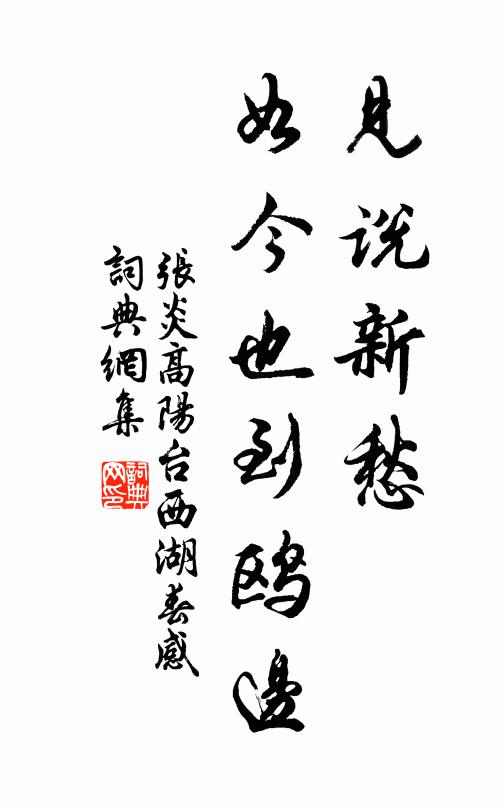 見説新愁
如今也到鸥邊
張炎高陽台西湖春感
詞典網集
詞典网印